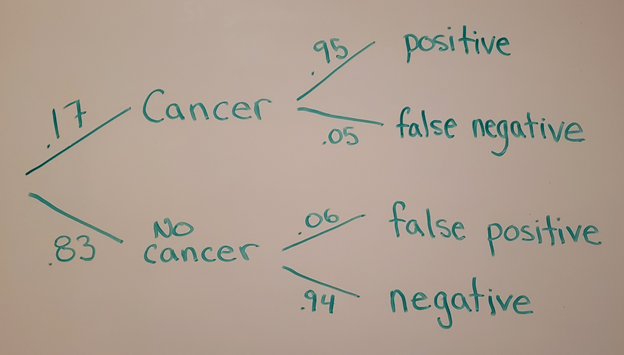 .95 positive
.17 Cancer
.05 false negative
.83 NO cancer
.06 false positive
.94 negative